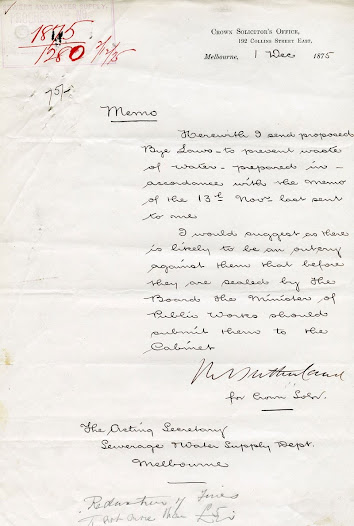 CROWN SOLICITOR'S OFFICE,
192 COLLINS STREET EAST,
Melbourne, 1 Dec 1875
1875
1280
75/-
Memo
Herewith I send proposed
Bye Laws - to prevent waste
of water - prepared in -
accordance with the Memo
of the 13th Novr last sent
to me
I would suggest as there
is likely to be an outcry
against them that before
they are sealed by the
Board the Minister of
Public Works should
submit them to the
Cabinet
Sutherland
for Crown Solr.
The Acting Secretary
Sewerage & Water Supply Dept.
Melbourne
Reduction of Fines
to not more than £5